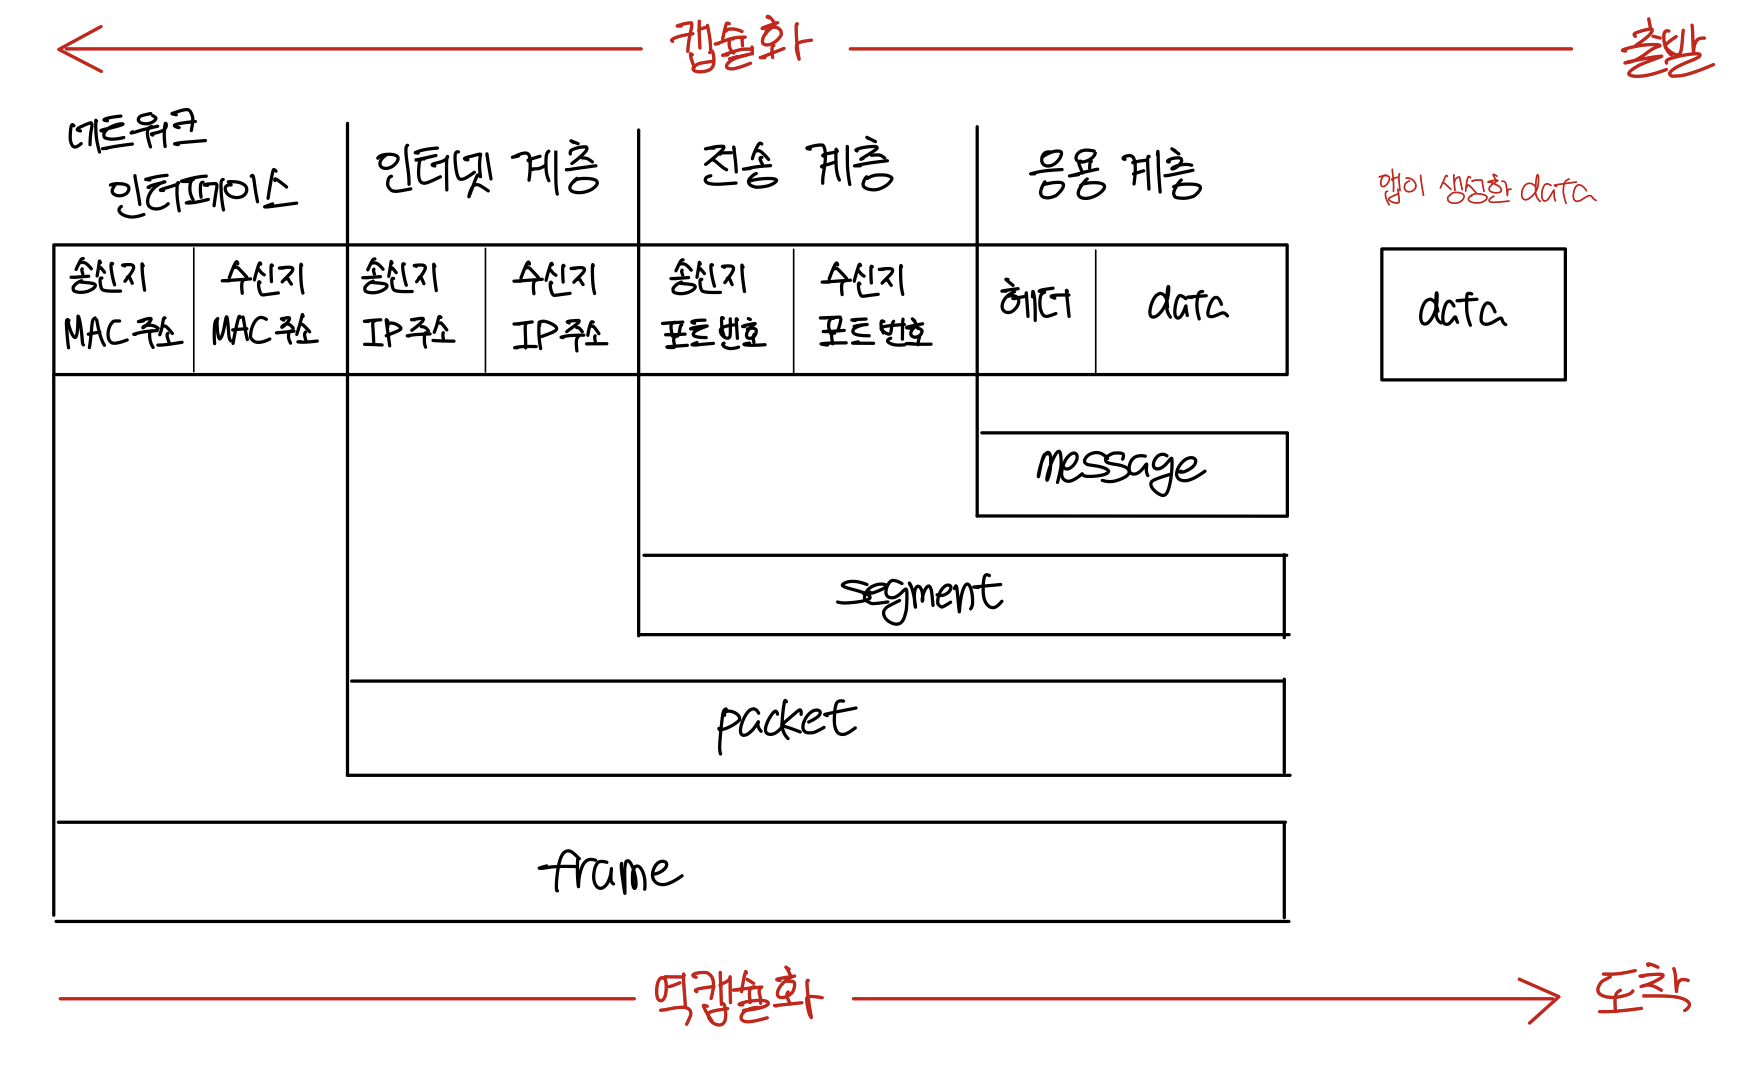 캡슐화
출발
네트워크
인터페이스
인터넷 계층
전송 계층
응용 계층
앱이 생성한 data
송신지
MAC 주소
수신지
MAC 주소
송신지
IP 주소
수신지
IP 주소
송신지
포트 번호
수신지
포트 번호
헤더
data
data
message
segment
packet
frame
역캡슐화
도착